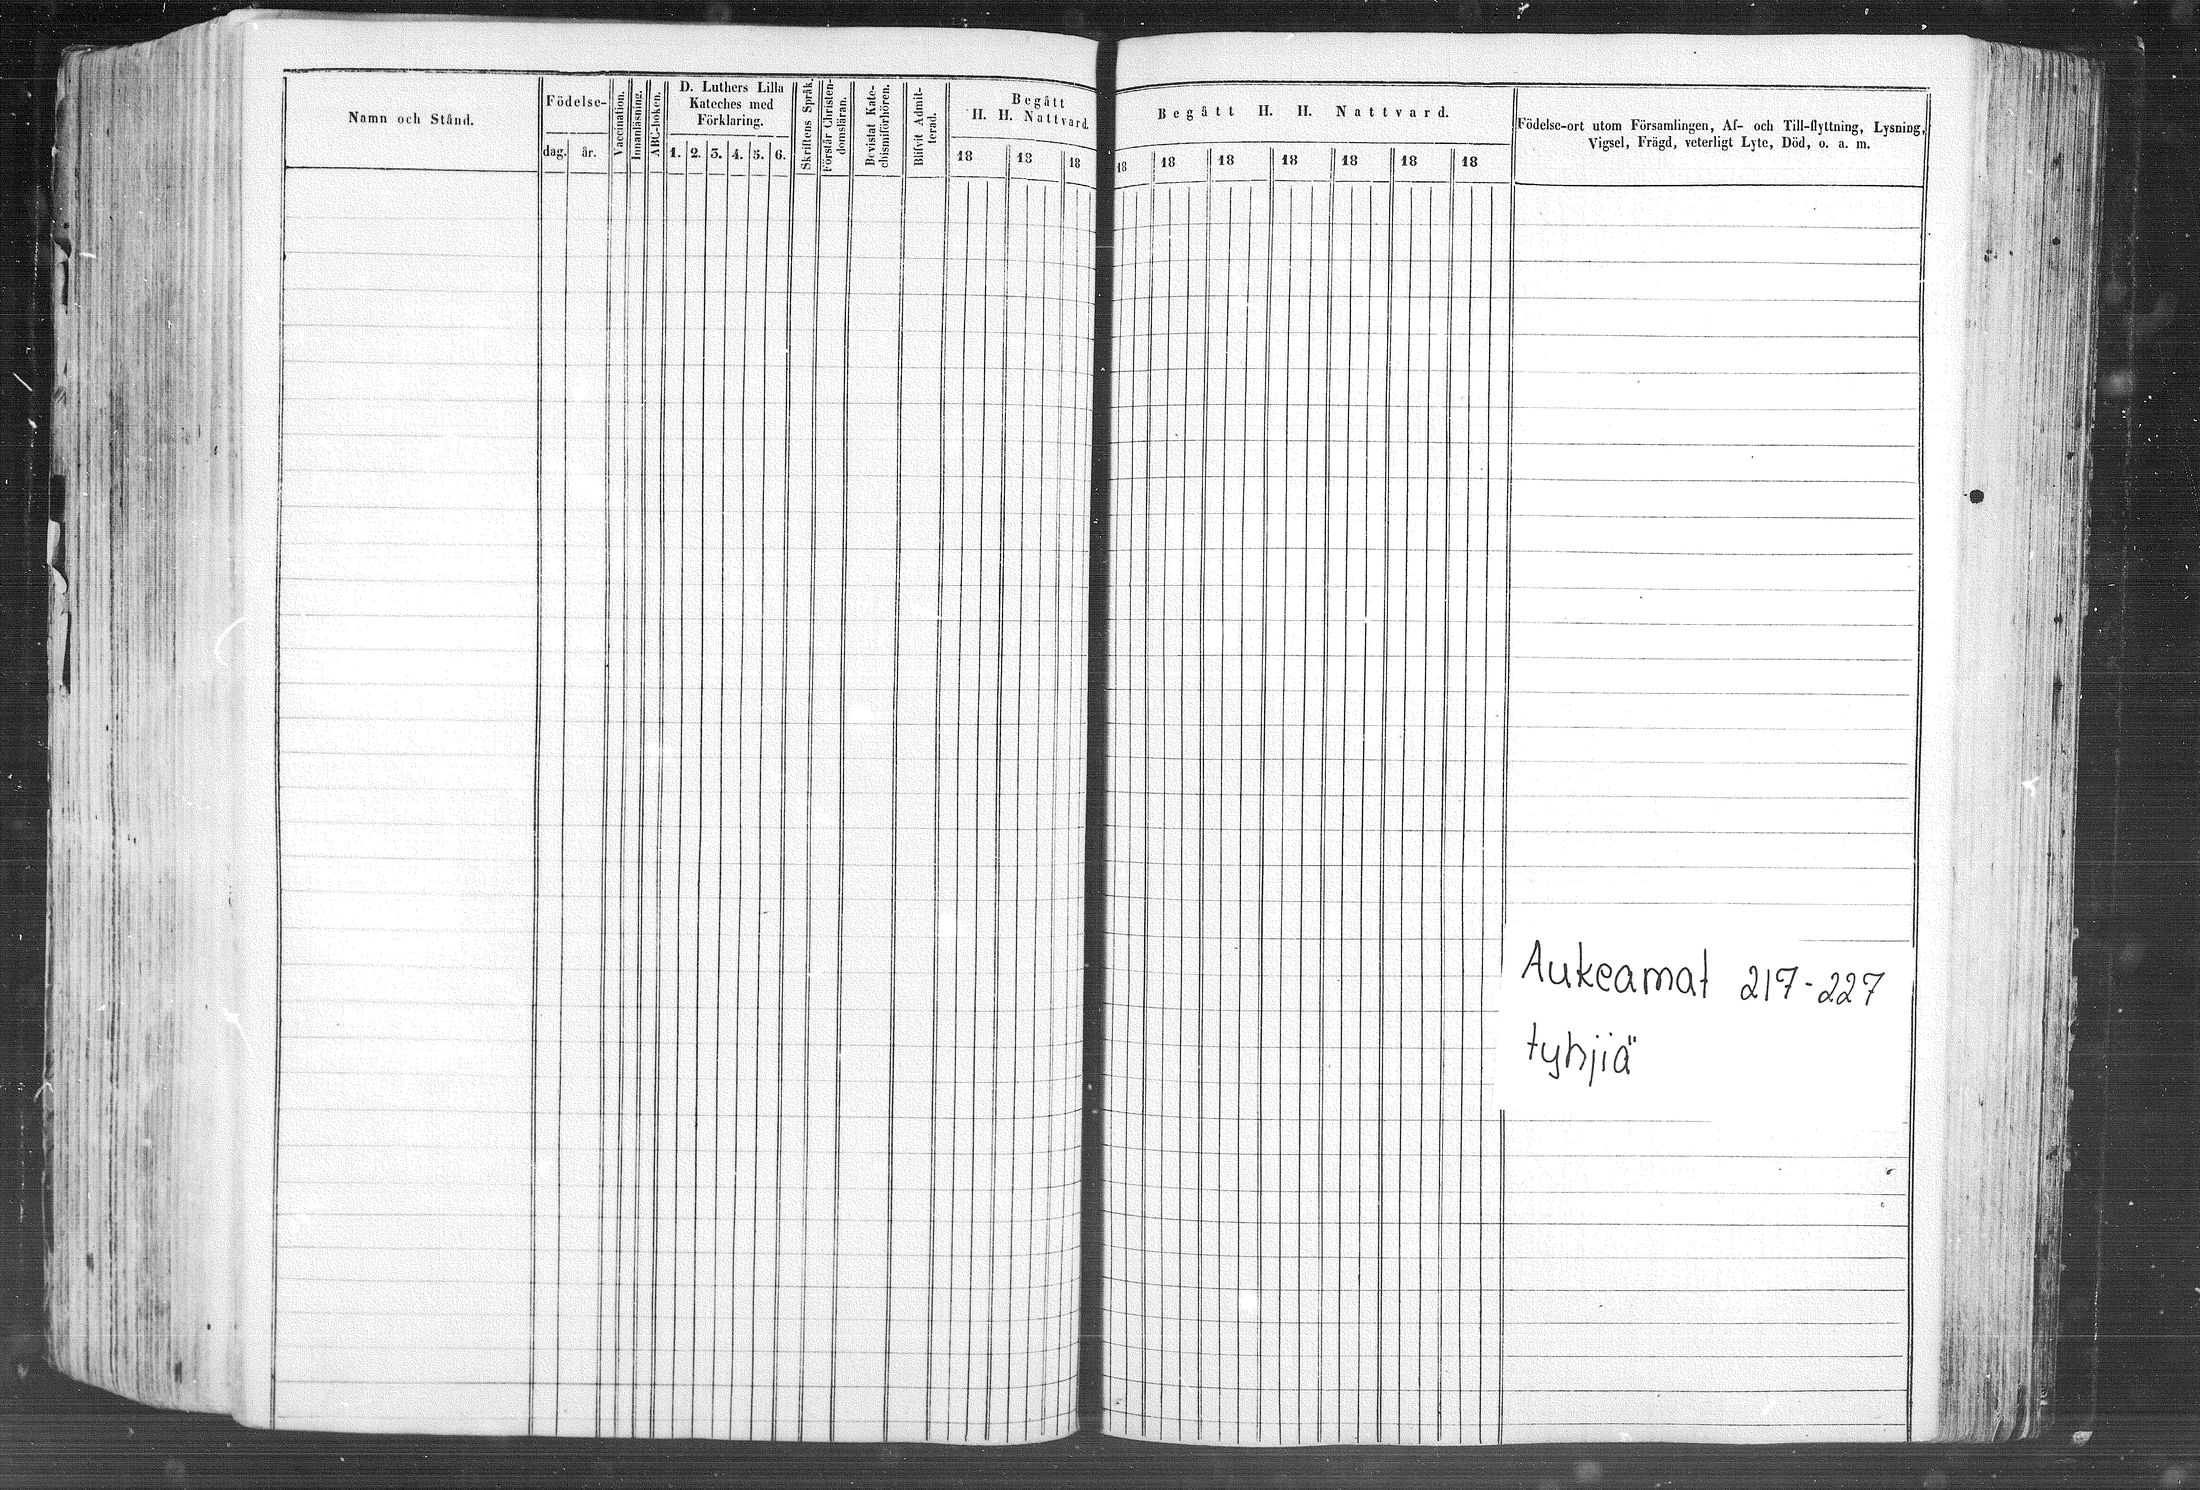 Namn och Stånd.
Födelse-
dag. år.
Vaccination.
Innanläsning.
ABC-boken.
D. Luthers Lilla
Kateches med
Förklaring.
1. 2. 3. 4. 5. 6.
Skriftens Språk.
Förstår Christen-
domsläran.
Bevistat Kate-
chismiförhören.
Blifvit Admit-
terad.
Begått
H. H. Nattvard.
18 18 18
Begått H. H. Nattvard.
18 18 18 18 18 18 18
Födelse-ort utom Församlingen, Af- och Till-flyttning, Lysning,
Vigsel, Frägd, veterligt Lyte, Död, o. a. m.
Aukeamat 217-227
tyhjiä